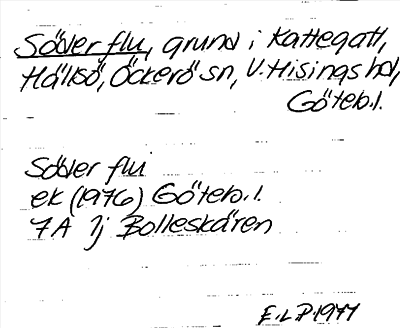 Söder flu, grund i Kattegatt,
Hälsö, Öckerö sn, V. Hisings hd,
Göteb. l.
Söder flu
ek (1976) Göteb. l.
7A 1j Bolleskären
E.L.P. 1977